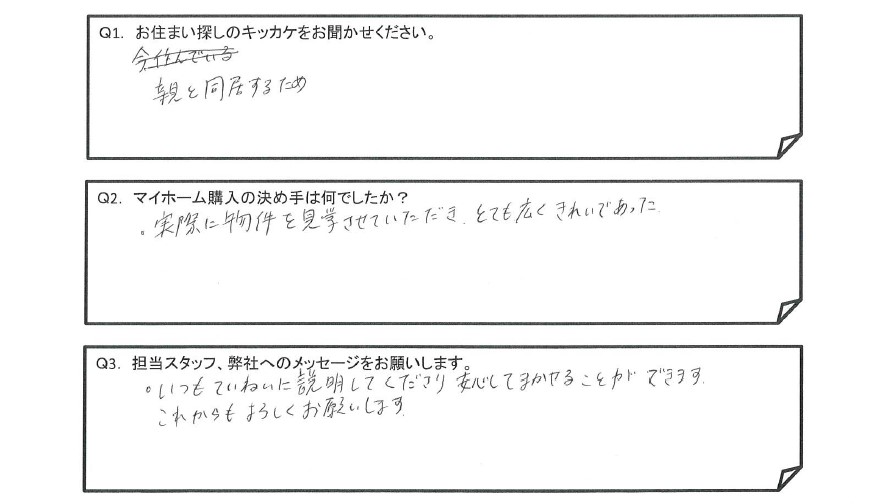 Q1. お住まい探しのキッカケをお聞かせください。
今住んでいる
親と同居するため
Q2. マイホーム購入の決め手は何でしたか？
。実際に物件を見学させていただき、とても広くきれいであった.
Q3. 担当スタッフ、弊社へのメッセージをお願いします。
。いつもていねいに説明してくださり安心してまかせることができます.
これからもよろしくお願いします